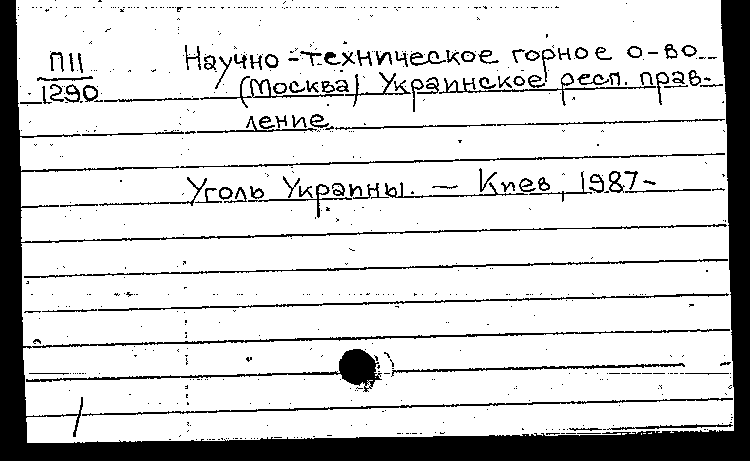 ПII Научно-техническое горное о-во
1290 (Москва) Украинское респ. прав-
ление
Уголь Украины. — Киев, 1987-